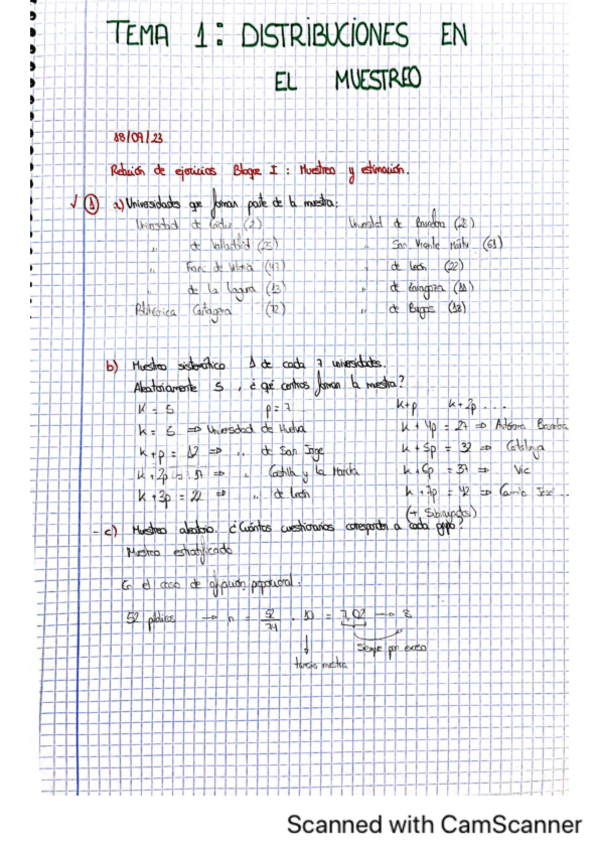 TEMA 1: DISTRIBUCIONES EN
EL MUESTREO
18/09/23
Relación de ejercicios Bloque I: Muestreo y estimación.
√ ① a) Universidades que forman parte de la muestra:
Universidad de Cádiz (2) Universidad de (20)
" de Valladolid (25) " San Vicente Mártir (61)
" Franc. de Vitoria (47) " de León (22)
" de la Laguna (13) " de Zaragoza (11)
Politécnica Cartagena (72) " de Burgos (18)
b) Muestreo sistemático 1 de cada 7 universidades.
Aleatoriamente 5, ¿qué centros forman la muestra?
K = 5 p = 7 k+p k+2p ...
k = 5 ⇒ Universidad de Huelva k + 4p = 27 ⇒ Autónoma Barcelona
k + p = 12 ⇒ " de San Jorge k + 5p = 32 ⇒ Catalunya
k + 2p = ⇒ " Castilla y la Mancha k + 6p = 37 ⇒ Vic
k + 3p = 22 ⇒ " de León k + 7p = 42 ⇒ Camilo José ...
(+ Subrayadas)
- c) Muestreo aleatorio. ¿Cuántos cuestionarios corresponden a cada grupo?
Muestreo estratificado
En el caso de afijación proporcional:
52 públicas → n = 52/74 · 10 = 7,02 → 8
↓ Siempre por exceso
tamaño muestra
Scanned with CamScanner